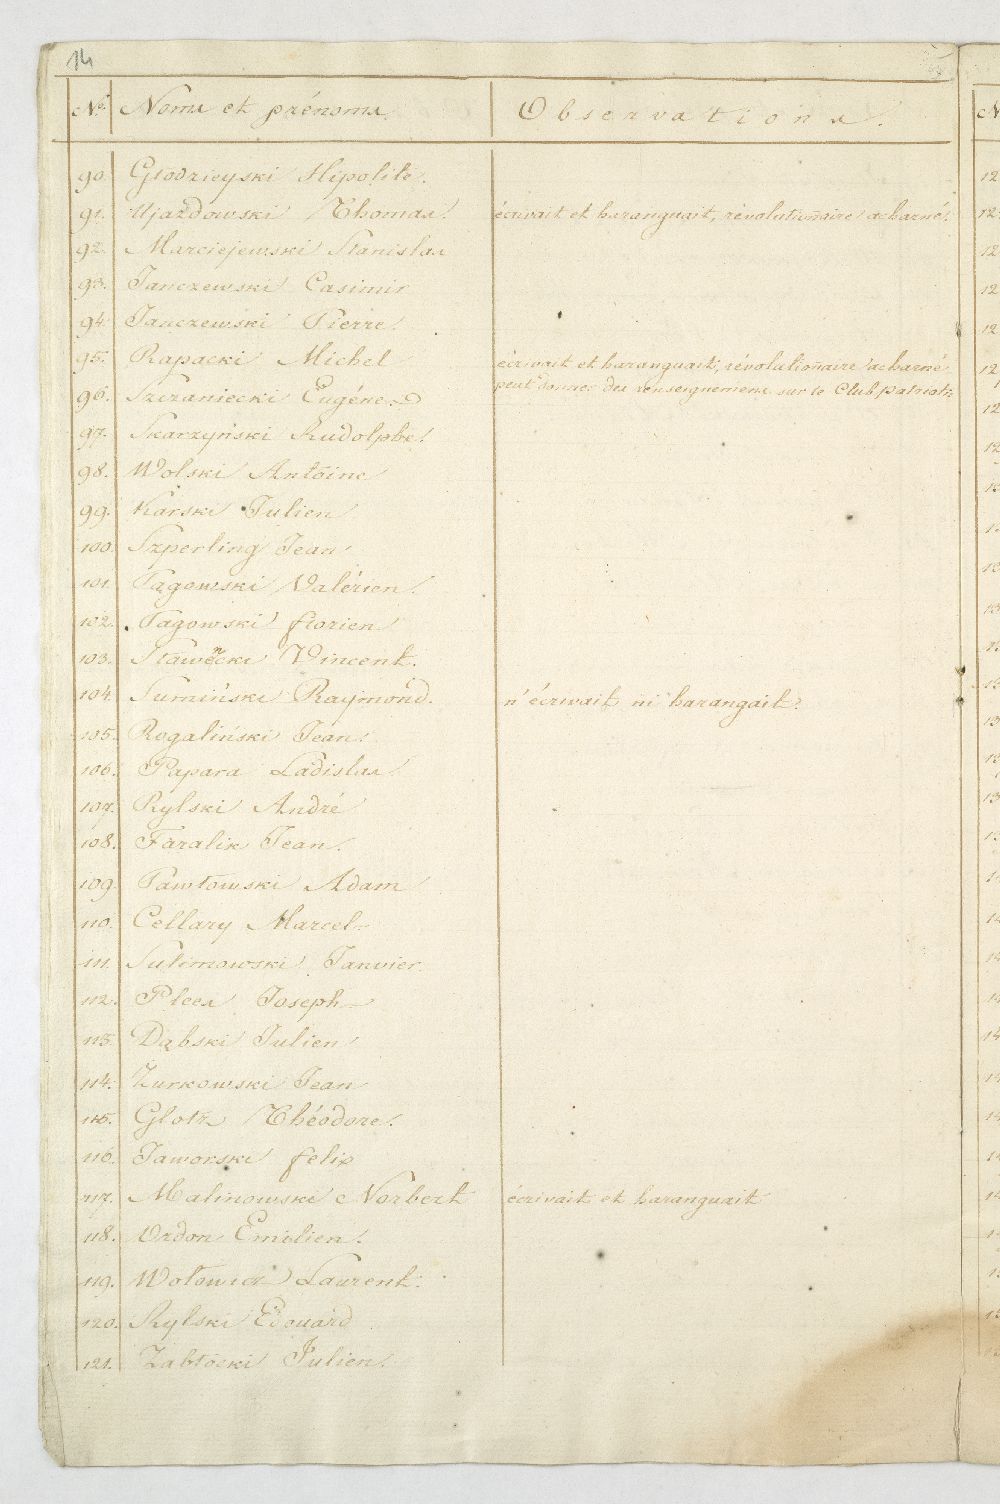 14
No. Noms et prénoms Observations.
90. Głodzieyski Hipolite.
91. Ujazdowski Thomas. écrivait et haranguait, révolutionaire acharné.
92. Marciejewski Stanislas
93. Janczewski Casimir
94. Janczewski Pierre.
95. Rapacki Michel écrivait et haranguait, révolutionaire acharné
peut donner des renseignemens sur le Club patriot:
96. Szczaniecki Eugéne
97. Skarzyński Rudolphe.
98. Wolski Antoine
99. Karski Julien
100. Szperling Jean
101. Tagowski Valérien.
102. Tagowski florien
103. Stawecki Vincent.
104. Sumiński Raymond. n'écrivait ni harangait.
105. Rogaliński Jean.
106. Papara Ladislas
107. Rylski André
108. Faralik Jean.
109. Pawłowski Adam
110. Cellary Marcel
111. Sulimowski Janvier
112. Plees Joseph
113. Dąbski Julien
114. Zurkowski Jean
115. Glotz Théodore.
116. Jaworski felix
117. Malinowski Norbert écrivait et haranguait
118. Ordon Emilien.
119. Wołowicz Laurent.
120. Rylski Edouard
121. Zabłocki Julien.